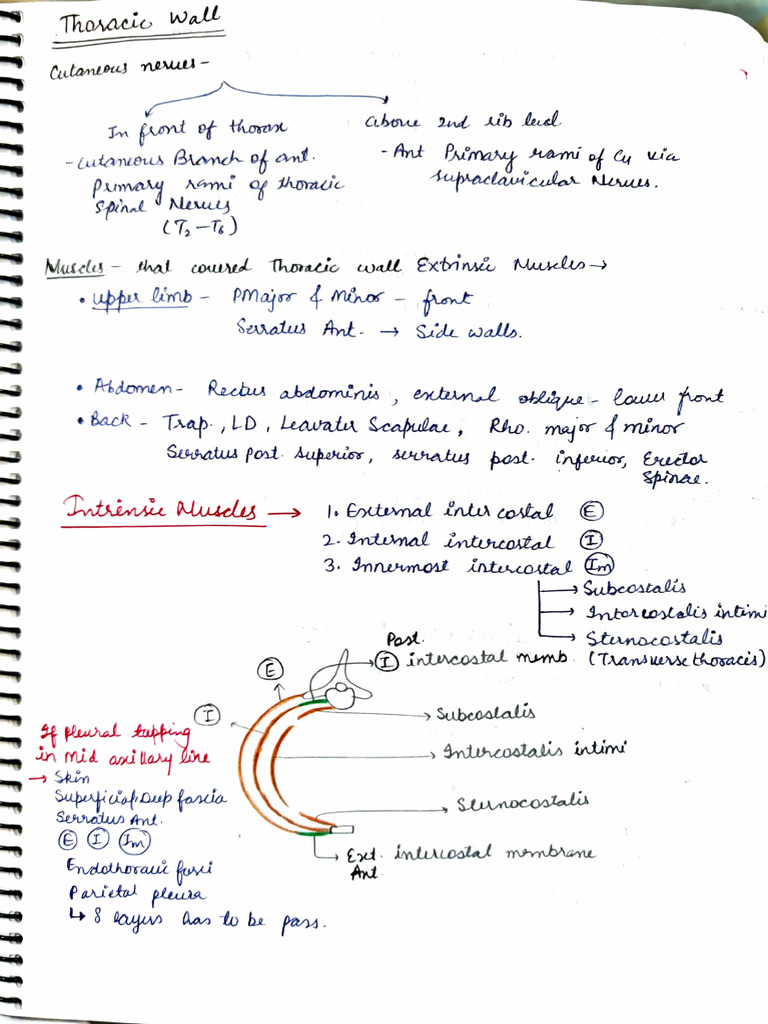 Thoracic Wall
Cutaneous nerves -
In front of thorax
- Cutaneous Branch of ant.
Primary rami of thoracic
Spinal Nerves
(T2 - T6)
above 2nd rib level
- Ant Primary rami of C4 via
supraclavicular Nerves.
Muscles - that covered Thoracic wall Extrinsic Muscles →
• Upper limb - PMajor & Minor - front
Serratus Ant. → Side walls.
• Abdomen - Rectus abdominis, external oblique - lower front
• Back - Trap., LD, Leavater Scapulae, Rho. major & minor
Serratus Post. Superior, serratus post. inferior, Erector
Spinae.
Intrinsic Muscles → 1. External intercostal E
2. Internal intercostal I
3. Innermost intercostal Im
→ Subcostalis
→ Intercostalis intimi
→ Sternocostalis
(Transverse thoracis)
Post.
I intercostal memb.
E
I
Subcostalis
Intercostalis intimi
Sternocostalis
Ext. intercostal membrane
Ant.
If pleural tapping
in Mid axillary line
→ Skin
Superficial, Deep fascia
Serratus Ant.
E I Im
Endothoracic fasci
Parietal pleura
↳ 8 layers has to be pass.